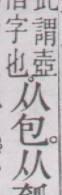 此謂壺
字也。
从包。从